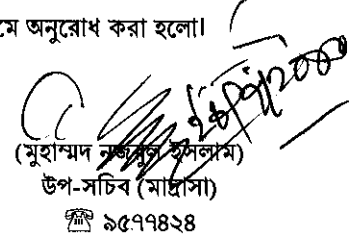 মে অনুরোধ করা হলো।
(মুহাম্মদ নজরুল ইসলাম)
উপ-সচিব (মাদ্রাসা)
☎ ৯৫৭৭৪২৪